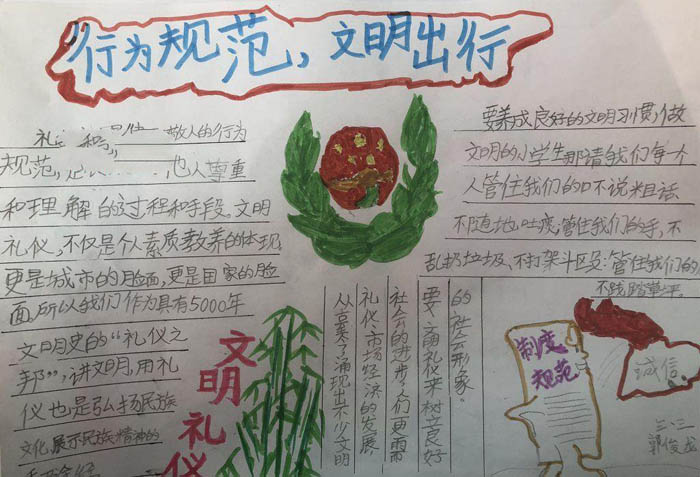 行为规范,文明出行
礼 和 敬人的行为
规范, 他人尊重
和理解的过程和手段。文明
礼仪,不仅是个人素质教养的体现,
更是城市的脸面,更是国家的脸
面,所以我们作为具有5000年
文明史的“礼仪之
邦”,讲文明,用礼
仪也是弘扬民族
文化,展示民族精神的
文明礼仪
要养成良好的文明习惯,做
文明的小学生那请我们每个
人管住我们的口不说粗话
不随地吐痰;管住我们的手,不
乱扔垃圾、不打架斗殴;管住我们的
不践踏草坪。
的社会形象”
要文明礼仪来树立良好
社会的进步了们更需
礼仪、市场经济的发展、
从古至今涌现出不少文明
制度
规范
诚信
三、二
郭俊